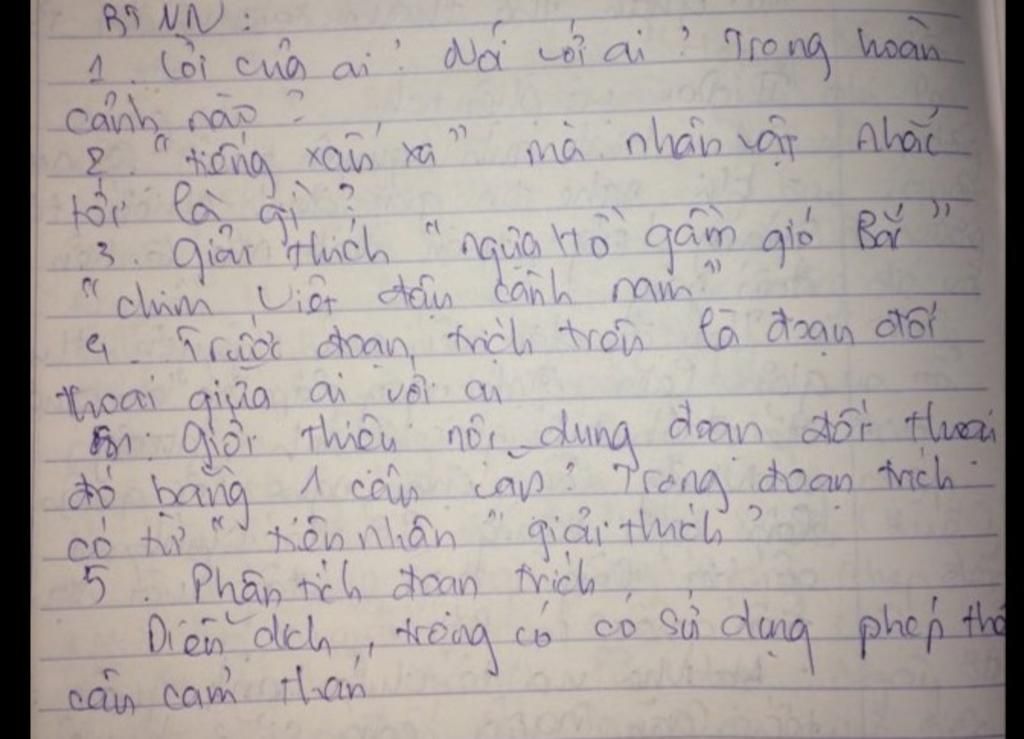 BT VN :
1. Lời của ai? Nói với ai? Trong hoàn
cảnh nào?
2. "tiếng xấu xa" mà nhân vật nhắc
tới là gì?
3. Giải thích "ngựa Hồ gầm gió Bắc"
"chim Việt đậu cành nam"
4. Trước đoạn trích trên là đoạn đối
thoại giữa ai với ai
Giới thiệu nội dung đoạn đối thoại
đó bằng 1 câu văn? Trong đoạn trích
có từ "tiên nhân" giải thích?
5. Phân tích đoạn trích
Diễn dịch, trong có có sử dụng phép thế
câu cảm thán